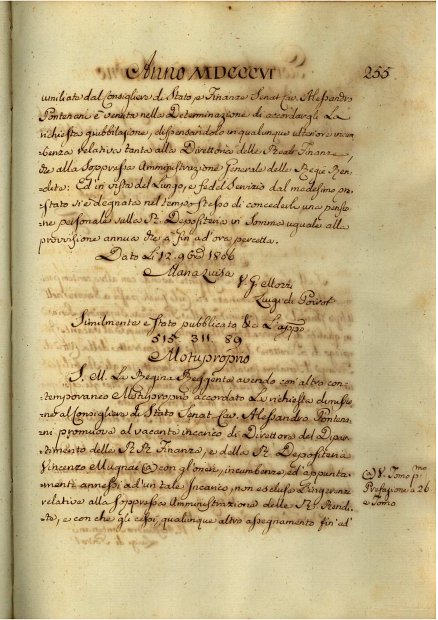 Anno MDCCCVI
255
umiliate dal Consigliere di Stato, e Finanze Senat. Cav. Alessandro
Pontenani è venuta nella Determinazione di accordargli La
richiesta giubbilazione, dispensandolo in qualunque ulteriore incum-
benza relativa tanto alla Direttoria delle Reali Finanze
che alla Soppressa Amministrazione Generale delle Regie Ren-
dite: Ed in vista del Lungo, e fedel Servizio dal medesimo pre-
stato si è degnata nel tempo stesso di concederle una pensio-
ne personale sulla R. Depositeria in Somma uguale alla
provvisione annua che a fin ad'ora percetta.
Dato Li 12. 9bre 1806
Maria Luisa
V. G. Mozzi
Luigi de Poirot
Similmente è stato pubblicato &c. L'app.o
515 311. 89
Motuproprio
S. M. La Regina Reggente avendo con altro con-
temporaneo Motuproprio accordato La richiesta dimissio-
ne al Consigliere di Stato Senat. Cav. Alessandro Pontena-
ni promuove al vacante incarico di Direttore del Dipar-
timento delle R. R. Finanze, e della R. Depositeria
Vincenzo Mugnai (a) con gl'oneri, incumbenze ed appunta-
menti annessi ad'un tale Incarico, non esclusa L'ingerenza
relativa alla Soppressa Amministrazione delle R. Rendi-
te, e con che gli cessi, qualunque altro assegnamento fin'ad'
(a) V. Tomo p.mo
Prefazione a 26
e Tomo